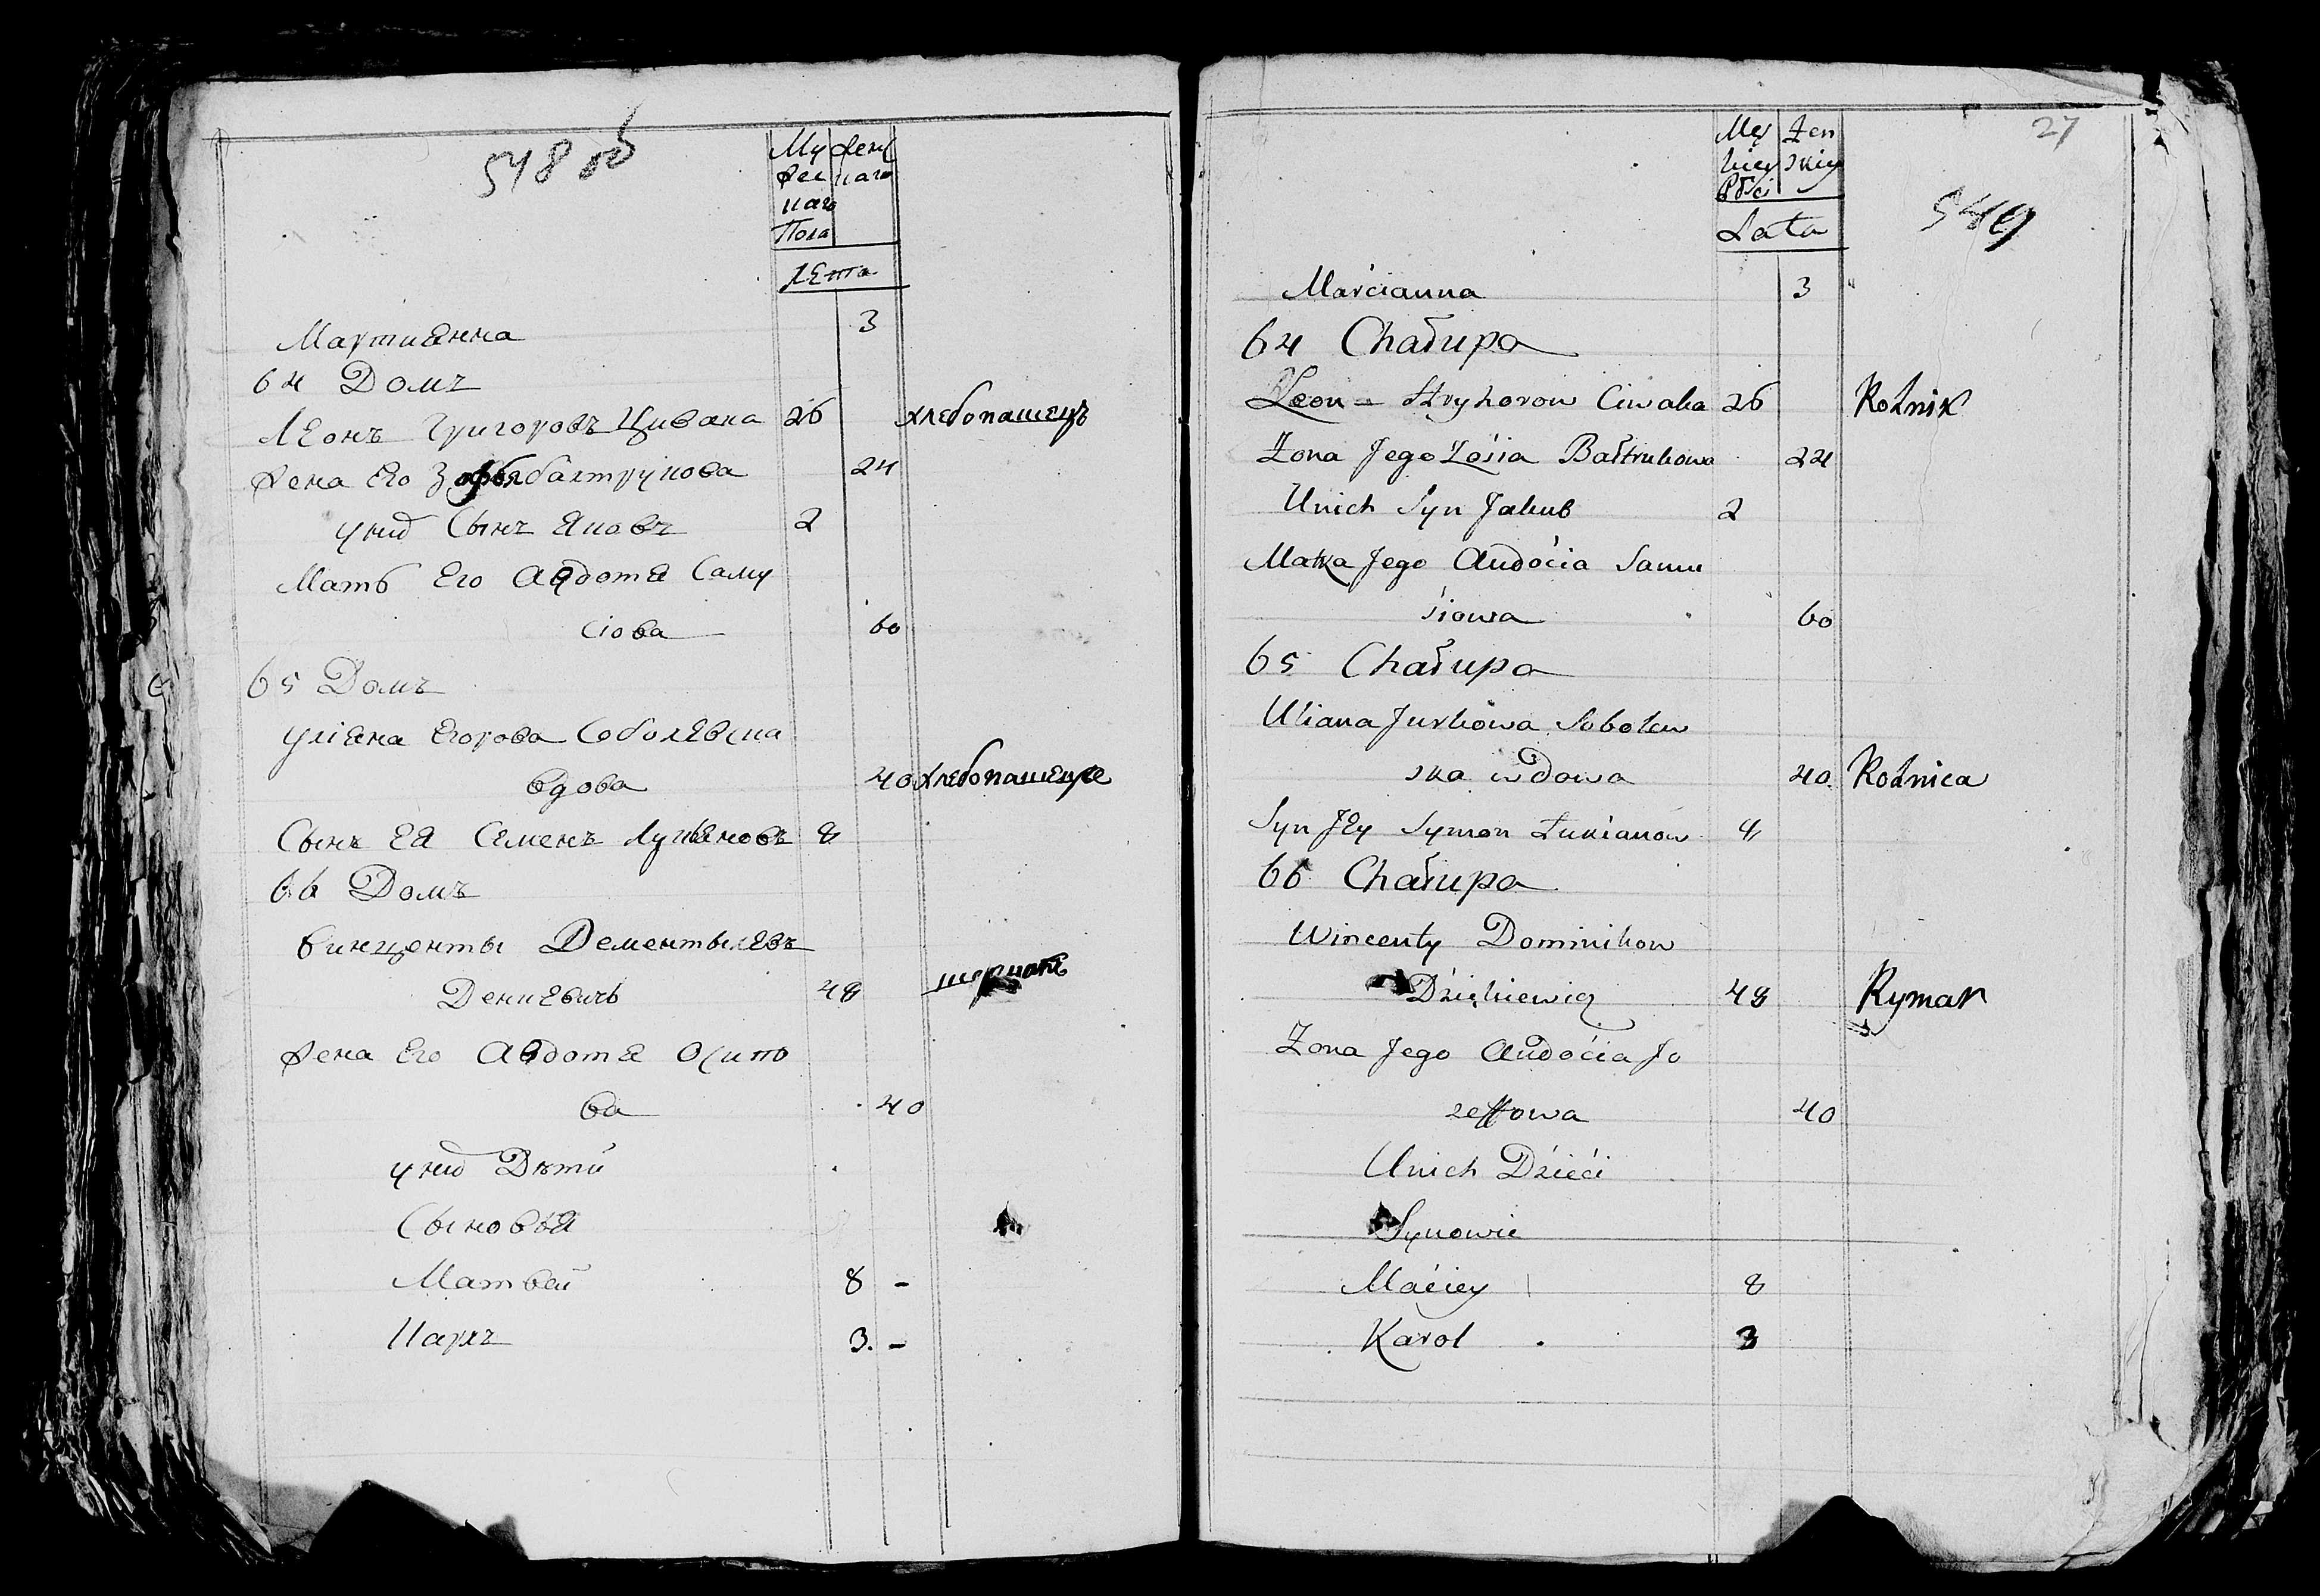 548 об
Му Жен
жес наго
наго
Пола
лѣта
Мартианна 3
64 Домъ
Леонъ Григоровъ Цивака 26 хлебопашецъ
Жена Его Зофья балтрукова 24
у них Сынъ Яковъ 2
Мать Его Авдотя Саму
сіова 60
65 Домъ
Уліяна Егорова Соболевска
вдова 40 хлебопашеца
Сынъ Ея Семенъ Лукьяновъ 8
66 Домъ
Винценты Дементьевъ
Денкевичъ 48
Жена Его Авдотя Осипо
ва 40
у них Дѣти
Сыновья
Матвей 8 -
Карлъ 3. -
27
549
Męz Żen
kiey skiey
Płci
Lata
Marcianna 3
64 Chałupa
Leon - Hryhorow Ciwaka 26 Rolnik
Żona Jego Zosia Bałtrukowa 24
U nich Syn Jakub 2
Matka Jego Audocia Samu
siowa 60
65 Chałupa
Uliana Jurkowa Sobolew
ska wdowa 40. Rolnica
Syn Jey Symon Łukianow 8
66 Chałupa
Wincenty Dominikow
Dziękiewicz 48 Rymar
Żona Jego Audocia Jo
zeffowa 40
U nich Dzieci
Synowie
Maciey 8
Karol 3